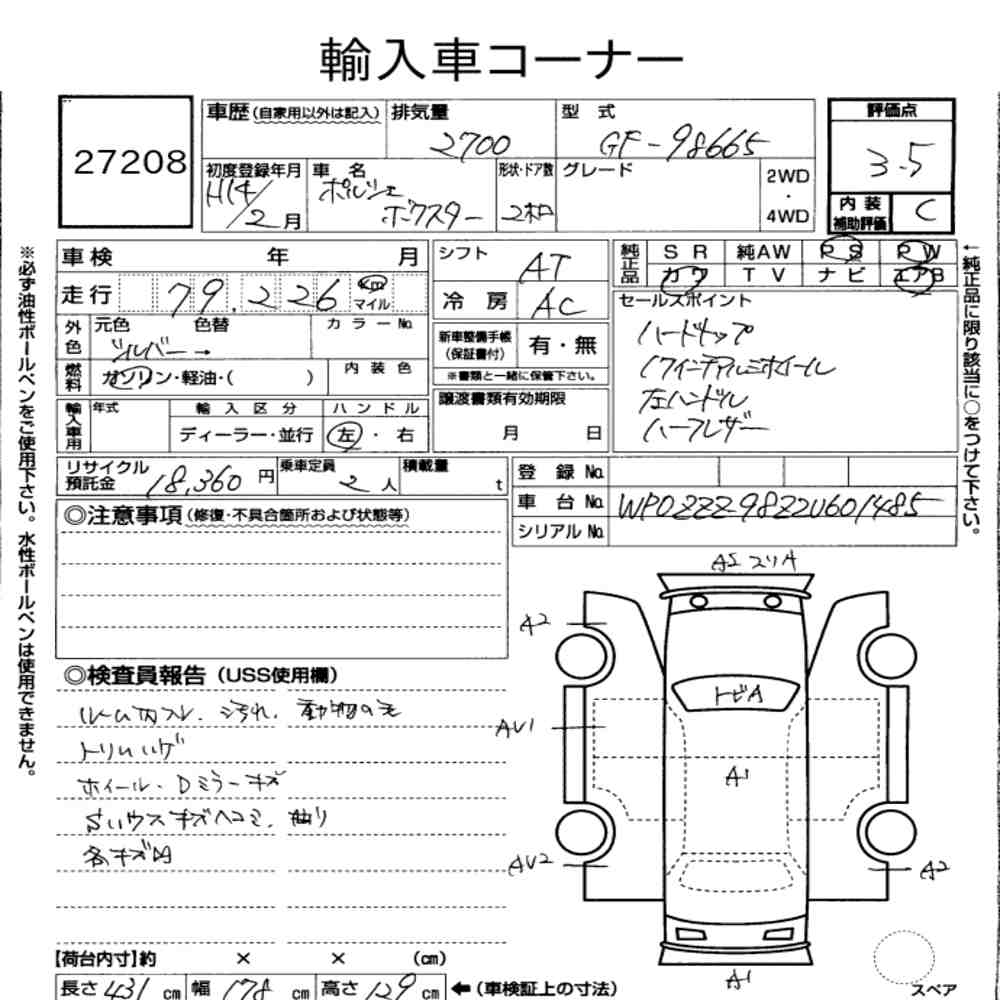 輸入車コーナー
27208
車歴(自家用以外は記入) 排気量 2700 型式 GF-98665
初度登録年月 H14/2月 車名 ポルシェ ボクスター 形状・ドア数 2 グレード 2WD・4WD
評価点 3.5
内装補助評価 C
車検 年 月
走行 79,226 Km マイル
外色 元色 シルバー→ 色替 カラーNo.
燃料 ガソリン・軽油・( ) 内装色
輸入車用 年式 輸入区分 ディーラー・並行 ハンドル 左・右
シフト AT
冷房 AC
新車整備手帳(保証書付) 有・無
※書類と一緒に保管下さい。
譲渡書類有効期限
月 日
純正品 SR 純AW PS PW
カワ TV ナビ エアB
セールスポイント
ハードトップ
17インチアルミホイール
左ハンドル
ハーフレザー
リサイクル預託金 18,360円 乗車定員 2人 積載量 t
登録No.
車台No. WP0ZZZ98Z2U601485
シリアルNo.
◎注意事項(修復・不具合箇所および状態等)
◎検査員報告(USS使用欄)
ルーム内スレ、汚れ、動物の毛
トリムハゲ
ホイール・Dミラーキズ
キズヘコミ、曲り
各キズ凹
A2
AV1
AV2
トビA
A1
A2
A1
スペア
【荷台内寸】約 × × (cm)
長さ 431 cm 幅 178 cm 高さ 129 cm ←(車検証上の寸法)
※必ず油性ボールペンをご使用下さい。水性ボールペンは使用できません。
←純正品に限り該当に○をつけて下さい。